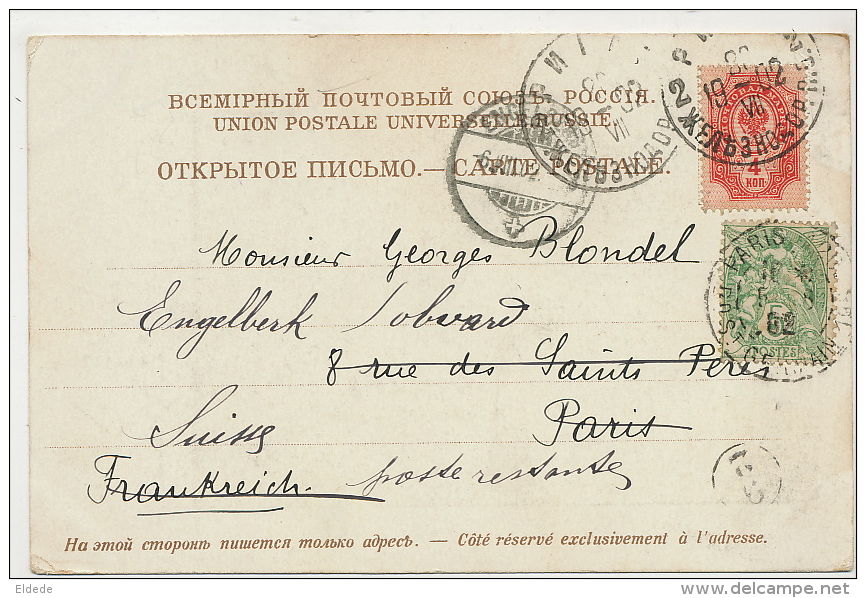 ВСЕМІРНЫЙ ПОЧТОВЫЙ СОЮЗЪ. РОССІЯ.
UNION POSTALE UNIVERSELLE. RUSSIE.
ОТКРЫТОЕ ПИСЬМО.— CARTE POSTALE.
4
КОП.
Monsieur Georges Blondel
Engelberk / obward
8 rue des Saints Peres
Suisse
Paris
Frankreich. poste restante
PARIS
02
POSTES
На этой сторонѣ пишется только адресъ. — Côté réservé exclusivement à l'adresse.
Eldede
delcampe.net